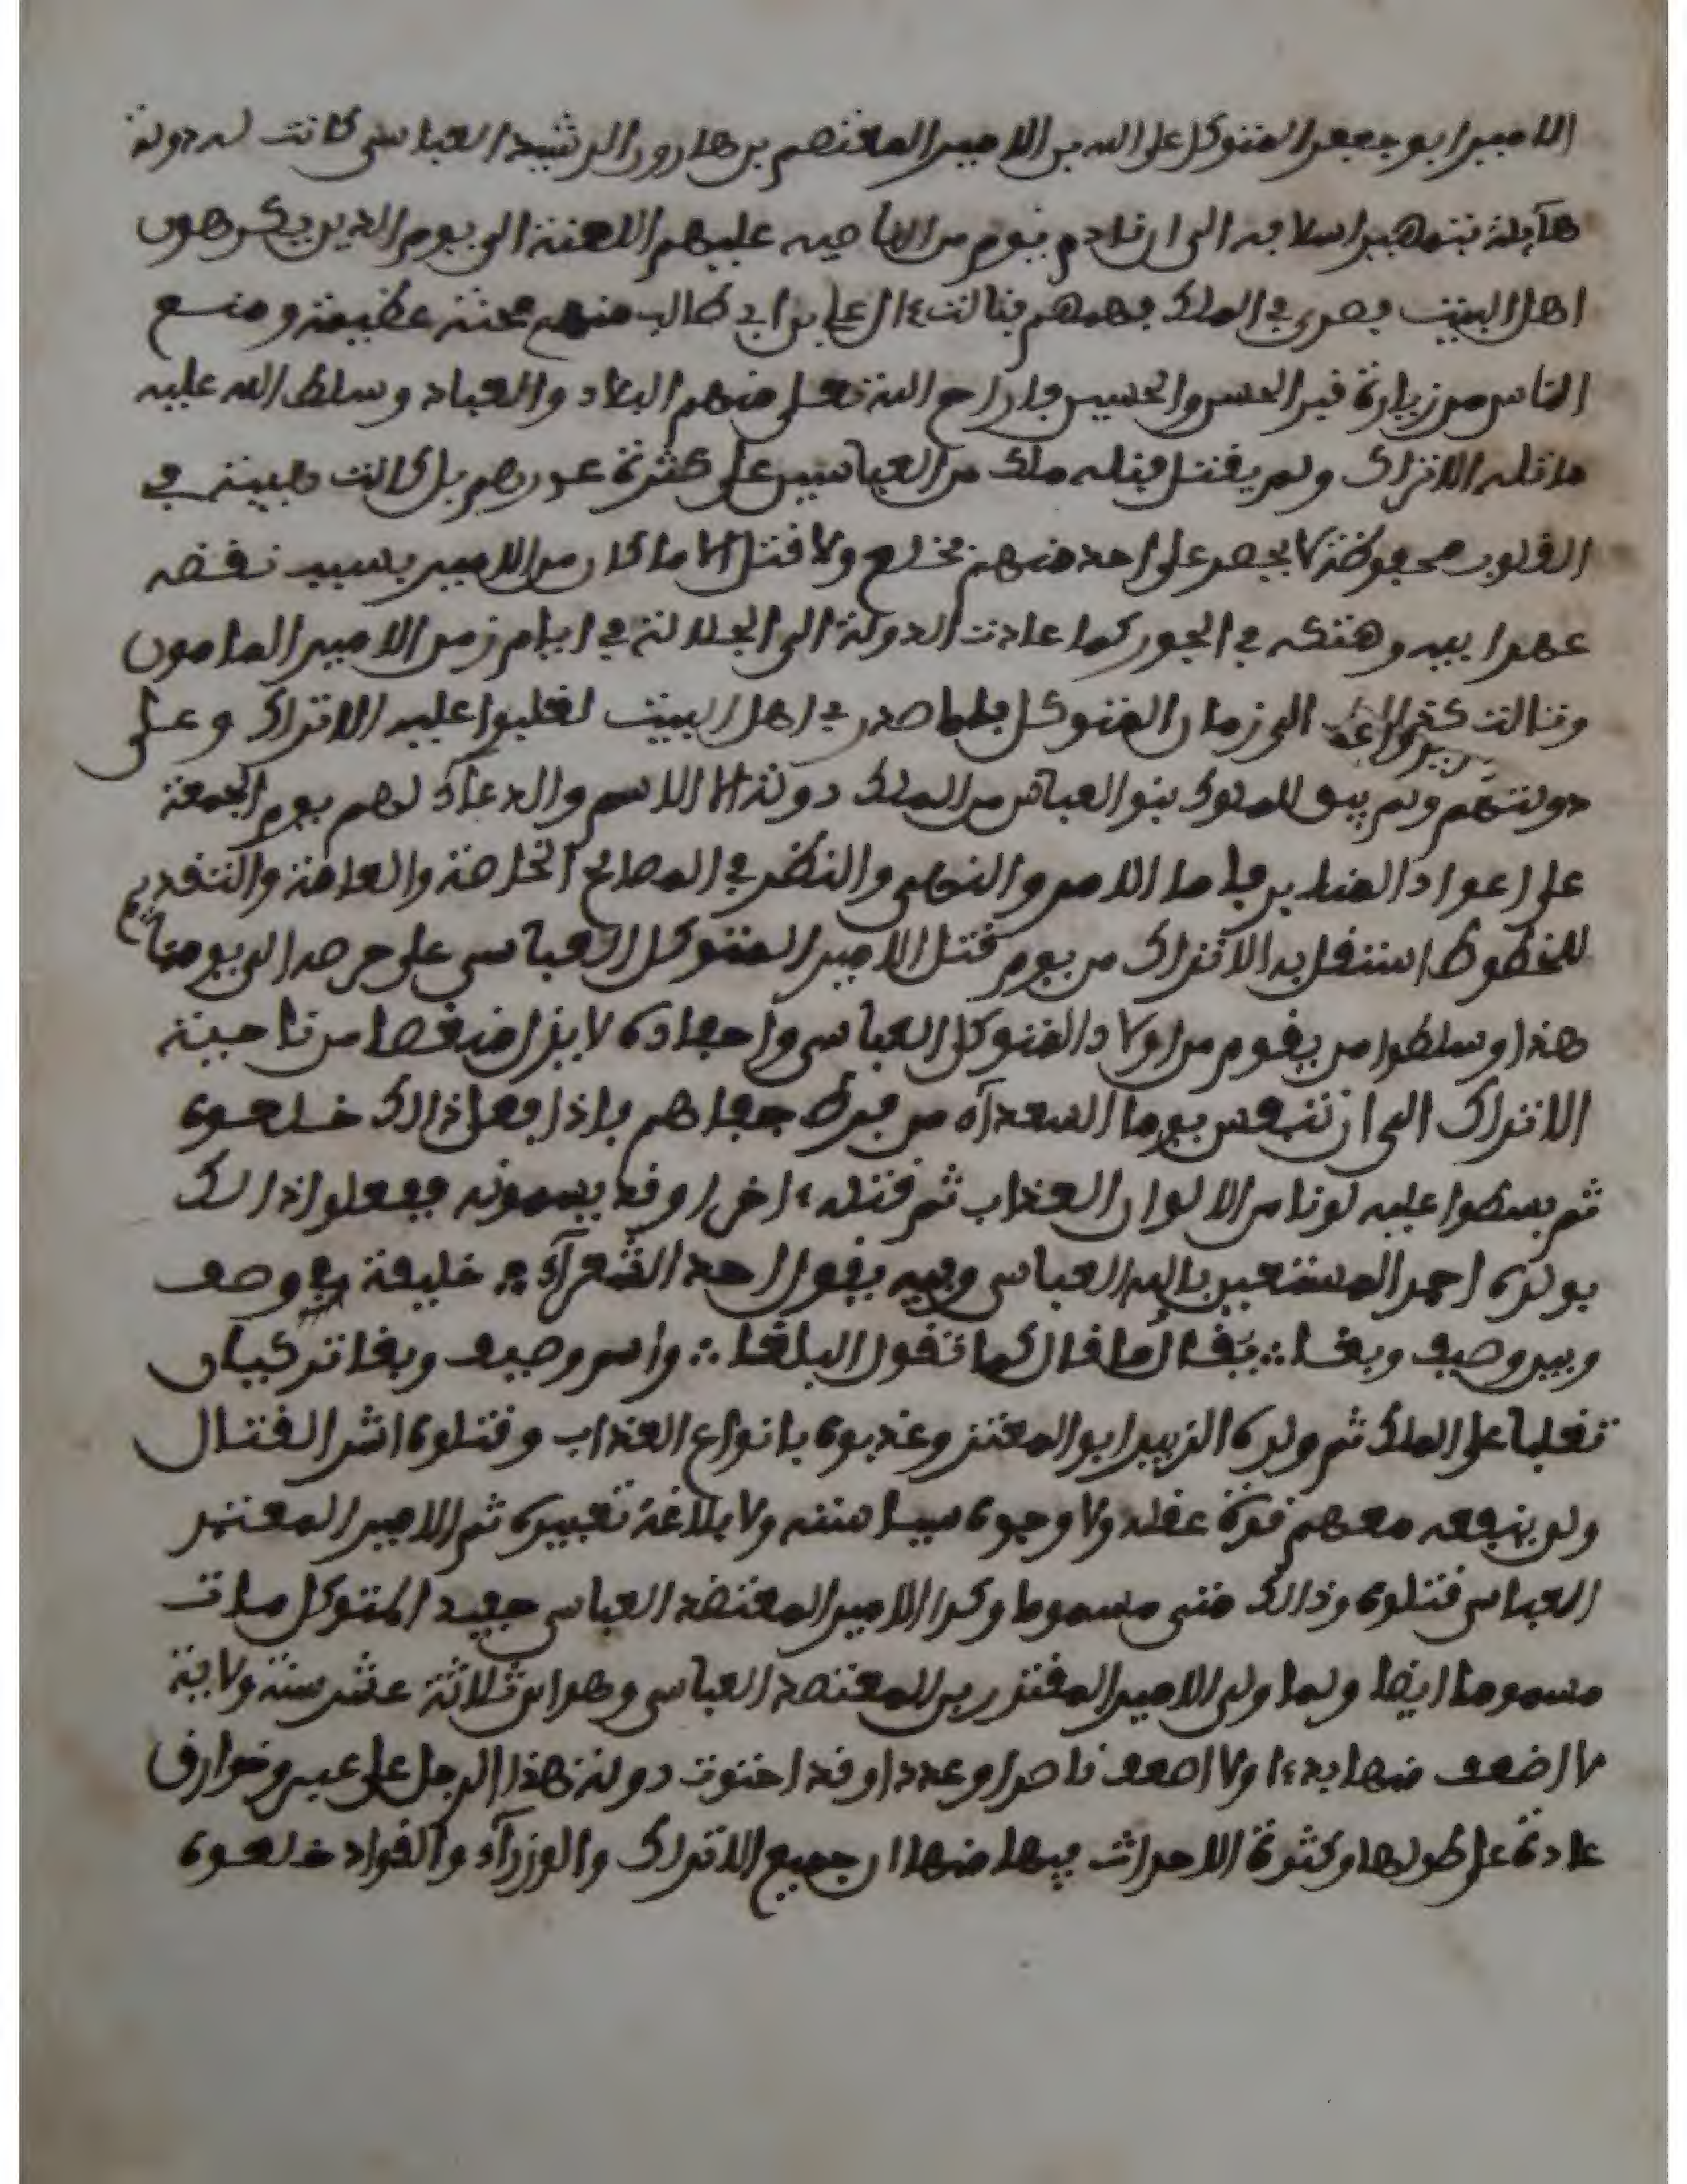 الامير ابو جعفر المتوكل على الله بن الامير المعتصم بن هارون الرشيد العباسي كانت له دولة
هآيلة بتمهيد اسلافه الى ان نادم بقوم من عليهم اللعنة الى يوم الدين يكرهون
اهل البيت في الملك فنالت ءال علي بن ابي طالب منهم محنة عظيمة ومنع
الناس من زيارة قبر الحسن والحسين فاراح الله تعلى منهم البلاد والعباد وسلط الله عليه
الاتراك ولم يقتل قبله ملك من العباسيين على كثرة عددهم بل كانت هيبته في
القلوب محفوظة لا يجصر على احد منهم بخلع ولا قتل الا ما كان من الامير بسبب نقضه
عهد ابيه وهتكه في الجور كما عادت الدولة الى الجلالة في ايام زمن الامير المامون
وتالت كذالك الى زمان المتوكل فلما صدر في اهل البيت تغلبوا عليه الاتراك وعلى
دولتهم ولم يبق للملوك بنو العباس من الملك دولة الا الاسم والدعاء لهم يوم الجمعة
على اعواد المنابر فاما الامر والنهي والنظر في المصالح الخاصة والعامة والتقديم
للخطوط استقل به الاتراك من يوم قتل الامير المتوكل العباسي على الى يومنا
هذا وسلطوا من يقوم من اولاد المتوكل العباسي واحفاده لا يزل منغصا من ناحية
الاتراك الى ان يتنفس يوما السعدآء من فرط جفاهم فاذا فعل ذالك خلعوه
ثم بسطوا عليه لونا من الالوان العذاب ثم قتله ءاخرا وقد يسمونه ففعلوا ذالك
بولده احمد المستعين بالله العباسي وفيه يقول احد الشعرآء ∴ خليفة في وصف
وبين وصيف وبغا ∴ يقال ما قال كما تقول الببغا ∴ واسم وصيف وبغا تركيان
تغلبا على الملك ثم ولده الزبير ابو المعتز وعذبوه بانواع العذاب وقتلوه اشر القتال
ولم ينفعه معهم قوة عقله ولا وجوه سياسته ولا بلاغة تعبيره ثم الامير المعتمد
العباس قتلوه وذالك متى مسموما وكذا الامير المعتضد العباسي حفيد المتوكل مات
مسموما ايضا ولما ولي الامير المقتدر بن المعتضد العباسي وهو ابن ثلاثة عشر سنة ولاية
لا اضعف منها يدءا ولا اضعف ناصرا وعددا وقد احتوت دولة هذا الرجل على عبر وخوارق
عادة على طولها وكثرة الاحداث فيها منها ان جميع الاتراك والوزرآء والقواد خلعوه